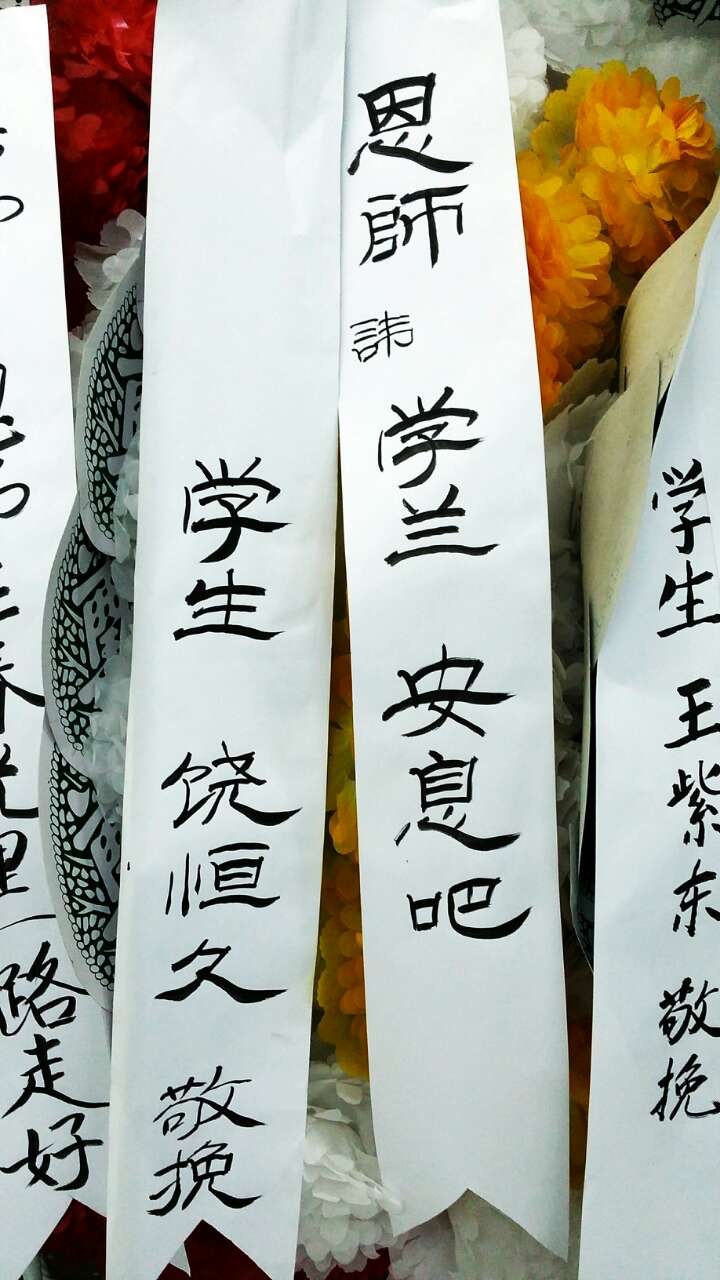 恩師 諱 学兰 安息吧
学生 饶恒久 敬挽
学生 王紫东 敬挽
路走好